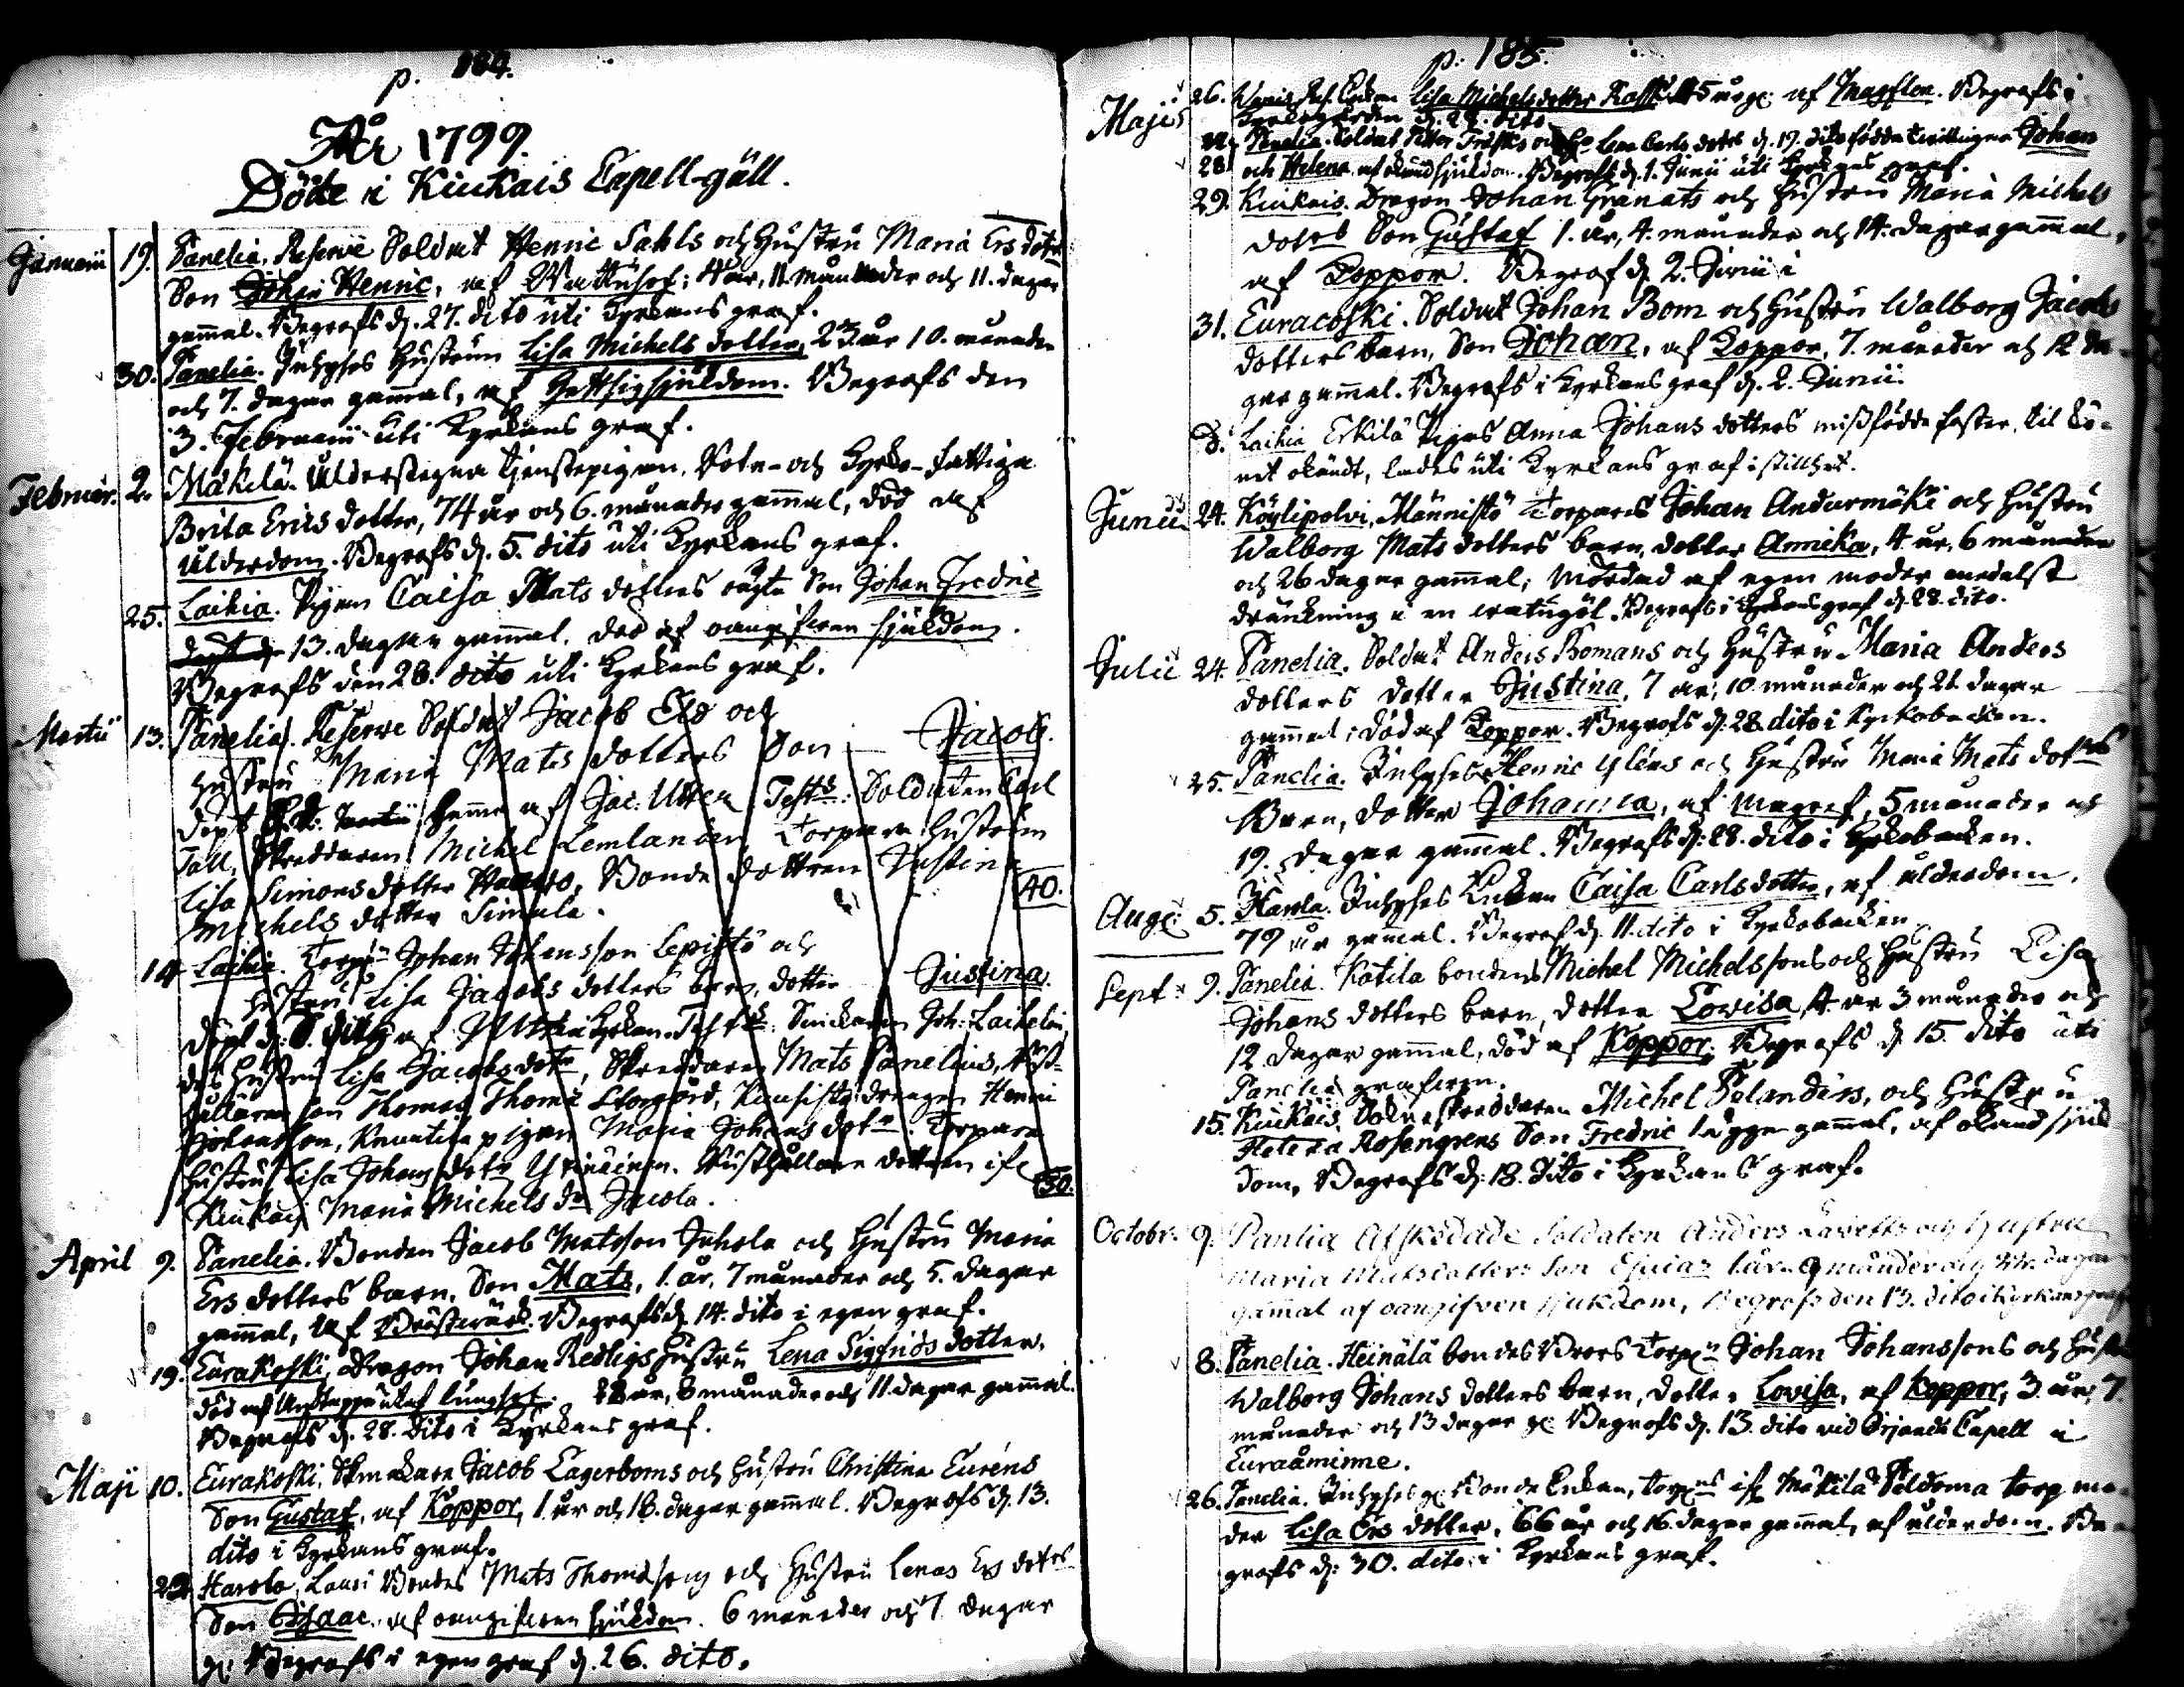 p. 184.
År 1799.
Döde i Kiukais Capell-gäll.
Januarii 19. Panelia, Reserve Soldat Henric Sahls och Hustru Maria Ers dotrs
Son Johan Henric, af Wattusot; 4 år, 11. månader och 11. dagar
gam̄al. Begrofs d. 27. dito uti Kyrkans graf.
30. Panelia. Inhyses Hustrun Lisa Michels dotter, 23 år 10. månader
och 7. dagar gam̄al, af Hettsigsjukdom. Begrofs den
3. Februarii uti Kyrkans graf.
Februar. 2. Mäkilä. Ålderstigna tjenstepigan, Rote- och Kyrko-fattiga
Brita Erics dotter, 74 år och 6. månader gam̄al, död af
ålderdom. Begrofs d. 5. dito uti Kyrkans graf.
25. Laihia. Pigan Caisa Mats dotters oägta Son Johan Fredric
13. dagar gam̄al. död af oangifven sjukdom.
Begrofs den 28. dito uti Kyrkans graf.
Martii 13. Panelia. Reserve Soldat Jacob Elo och
Hustru Maria Mats dotters Son — Jacob.
döpt hemma af Jac. Utter. Testes: Soldaten Carl
Tall, Skreddaren Michel Lemlander, Torpare hustrun
Lisa Simons dotter, Bonde dottren Justina
Michels dotter Simula. 40.
14. Laihia. Johan Johansson Lepistö och
Hustru Lisa Jacobs dotters barn, dotter Justina.
döpt d. dito af Kyrkan. Snickaren Joh: Laihelin,
des hustru Lisa Jacobs dotr, Skreddaren Mats Panelius,
son Thomas Thomæ Storgård, drengen Henric
Johansson, pigan Maria Johans dotr. Torpare
Hustrun Lisa Johans dotr. Rusthållare dottren ifr.
Kiukais Maria Michels dr Jacola. 50.
April 9. Panelia. Bonden Jacob Matsson Juhola och Hustru Maria
Ers dotters barn, Son Mats, 1. år, 7 månader och 5. dagar
gam̄al, af Bröstverk. Begrofs d. 14. dito i egen graf.
19. Eurakoski, Dragon Johan Redligs Hustru Lena Sigfrids dotter,
död af Andtäppa utaf lungsot. år, 8 månader och 11 dagar gam̄al.
Begrofs d. 28. dito i Kyrkans graf.
Maji 10. Eurakoski. Jacob Lagerboms och Hustru Christina Euréns
Son Gustaf, af Koppor, 1. år och 18. dagar gam̄al. Begrofs d. 13.
dito i Kyrkans graf.
Harola, Lauri Bondes Mats Thomassons och Hustru Lenas Ers dotrs
Son Isaac, af oangifven sjukdom. 6 månader och 7 dagar
g: Begrofs i egen graf d. 26. dito.
p. 185.
Maji 26. Enkan Lisa Michels dotter 5 år g: af Magplan. Begrofs i
Kyrkogården d. 28. dito
Panelia. Soldat Petter Frisks och Ho Lena Carls dotrs d. 19. dito födda tvillingar Johan
28. och Helena af okänd sjukdom. Begrofs d. 1. Junii uti Kyrkans graf.
29. Kiukais. Dragon Johan Granats och Hustru Maria Michels
dotrs Son Gustaf 1. år, 4. månader och 14. dagar gam̄al,
af Koppor. Begrof d. 2. Junii i
31. Euracoski. Soldat Johan Bom och Hustru Walborg Jacobs
dotters barn, Son Johan, af Koppor, 7. månader och 12 da-
gar gam̄al. Begrofs i Kyrkans graf d. 2. Junii.
D. Laihia Erkilä Pigas Anna Johans dotters missfödde foster, til kö-
net okändt, lades uti Kyrkans graf i stillhet.
Junii 24. Köylipolvi, Männistö Torpares Johan Andurmäki och Hustru
Walborg Mats dotters barn, dotter Annika, 4 år, 6 månader
och 26 dagar gam̄al; mördad af egen moder medelst
dränkning i en watugöl. Begrofs i Kyrkans graf d. 28. dito.
Julii 24. Panelia. Soldat Anders Bomans och Hustru Maria Anders
dotters dotter Justina, 7 år, 10 månader och 21. dagar
gam̄al; död af Koppor. Begrofs d. 28 dito i Kyrkobacken.
25. Panelia. Inhyses Henric Yléns och Hustru Maria Mats dotrs
Barn, dotter Johanna, af Magref, 5 månader och
19. dagar gam̄al. Begrofs d: 28. dito i Kyrkobacken.
Aug: 5. Harola. Inhyses Enkan Caisa Carlsdotter, af ålderdom,
79 år gam̄al. Begrof d. 11. dito i Kyrkobacken
Sept: 9. Panelia. Katila bondens Michel Michelssons och Hustru Lisa
Johans dotters barn, dotter Lovisa, 4. år 3 månader och
12 dagar gam̄al, död af Koppor; Begrofs d 15. dito uti
Panelia grafven.
15. Kiukais. Sockneskreddaren Michel Selanders, och Hustru
Helena Rosengrens Son Fredric 1 dygn gam̄al, af okänd sjuk
dom, Begrofs d: 18. dito i Kyrkans graf.
Octobr: 9. Panlia Afskedade Soldaten Anders Lavetts och Hustru
Maria Matsdotters Son Esaias 1. år 9 månader och dagar
gam̄al af oangifven sjukdom, Begrofs den 13. dito i Kyrkans graf
8. Panelia. Heinälä bondes Brors Johan Johanssons och Hustru
Walborg Johans dotters barn, dotter Lovisa, af Koppor, 3. år, 7.
månader och 13 dagar g: Begrofs d. 13. dito vid Irjande Capell i
Euraåminne.
26. Panelia. Inhyses g: Bonde Enkan, ifr Mäkilä Peldoma torp mo-
der Lisa Ers dotter, 66 år och 16. dagar gam̄al, af ålderdom. Be-
grofs d: 30. dito i Kyrkans graf.